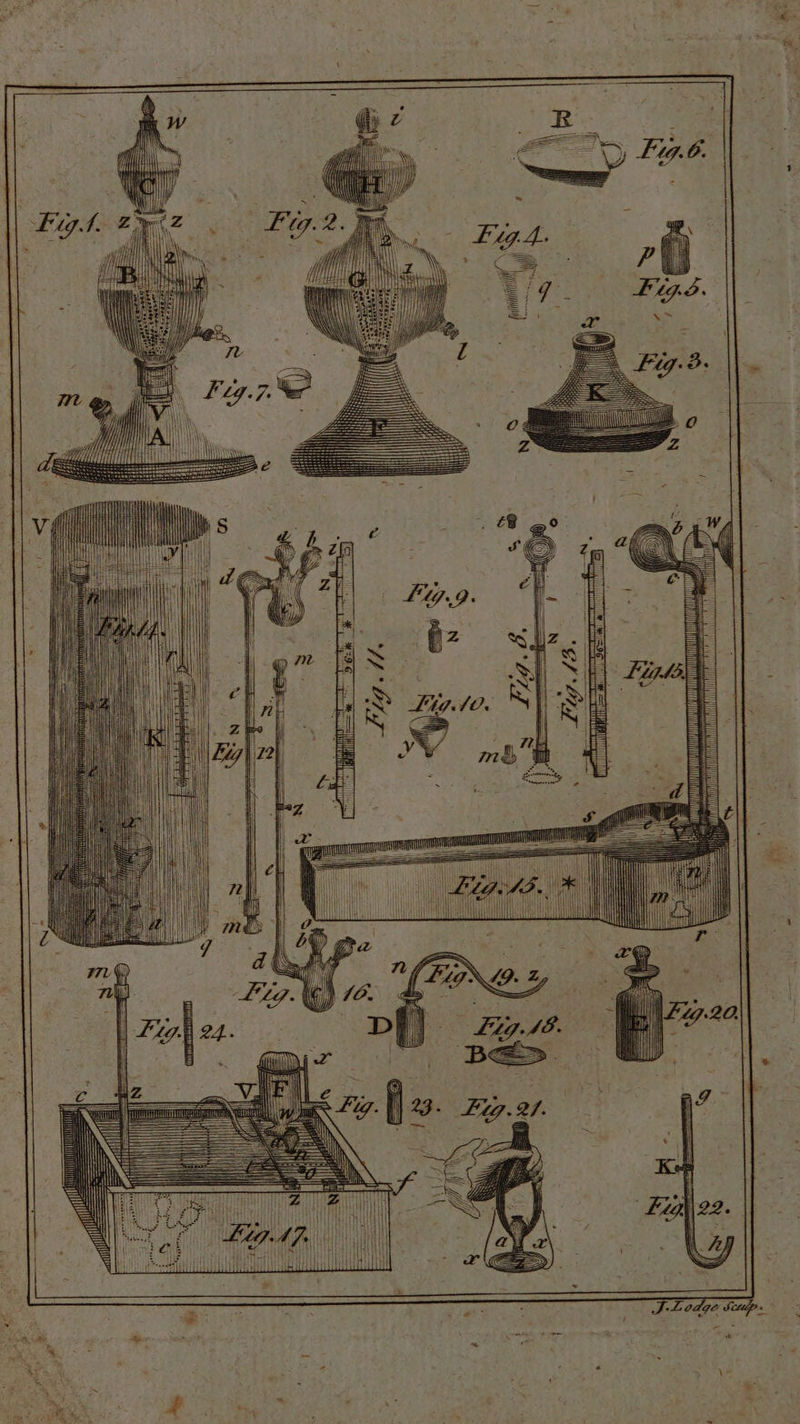 W i R
C H Fig.6.
Fig.1. Z Z Fig.2. Fig.4. P
B 2 G q Fig.5.
n l x Fig.3.
m Fig.7. K
V A F o o
d e z z
V S h c o a b W
y d z s c
Fig.14. Fig.9. z z
m Fig.11. Fig.8. Fig.13.
c n Fig.10. y
K z Fig 12 m n
d
z x s t
c Fig.15. *
n m n m
l a q r
m d b a n Fig.19. z x
n Fig. 16. D Fig.18. Fig.20
Fig. 24. B
V F x
c z e Fig. 23. Fig.21. g
w K
f Fig 22.
z z
Fig.17. a x h
c x
J. Lodge Sculp.